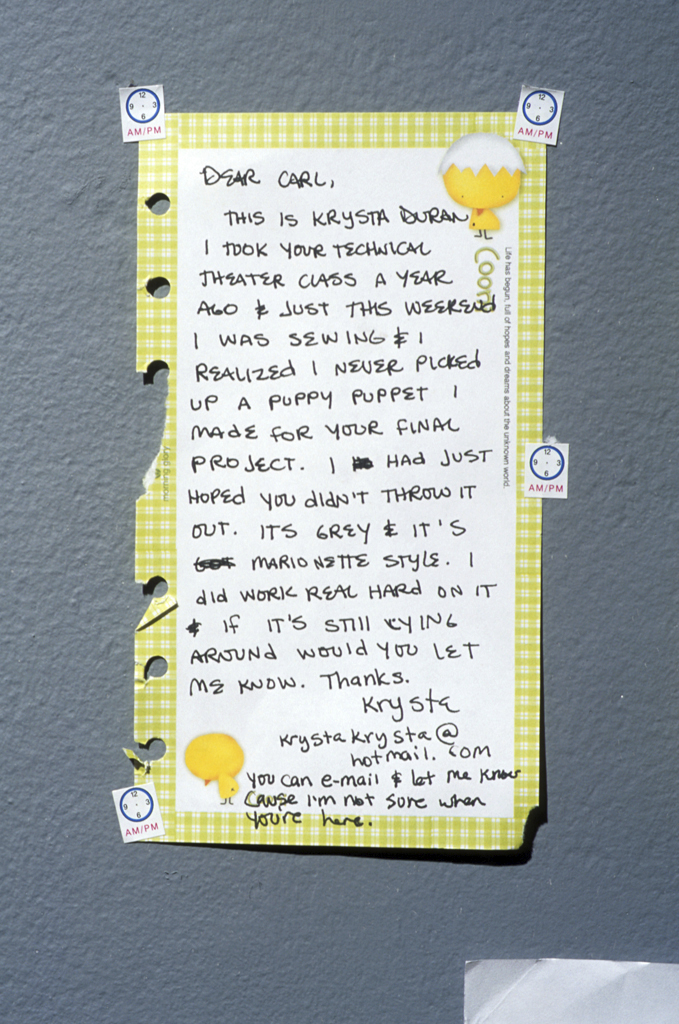 12
9 3
6
AM/PM
12
9 3
6
AM/PM
DEAR CARL,
THIS IS KRYSTA DURAN
I TOOK YOUR TECHNICAL
THEATER CLASS A YEAR
AGO & JUST THIS WEEKEND
I WAS SEWING & I
REALIZED I NEVER PICKED
UP A PUPPY PUPPET I
MADE FOR YOUR FINAL
PROJECT. I HAD JUST
HOPED YOU DIDN'T THROW IT
OUT. ITS GREY & IT'S
MARIONETTE STYLE. I
did WORK REAL HARD ON IT
& IF IT'S STILL LYING
AROUND WOULD YOU LET
ME KNOW. Thanks.
Krysta
krystakrysta@
hotmail.com
You can e-mail & let me know
Cause I'm not sure when
you're here.
Coon
Life has begun, full of hopes and dreams about the unknown world.
12
9 3
6
AM/PM
12
9 3
6
AM/PM